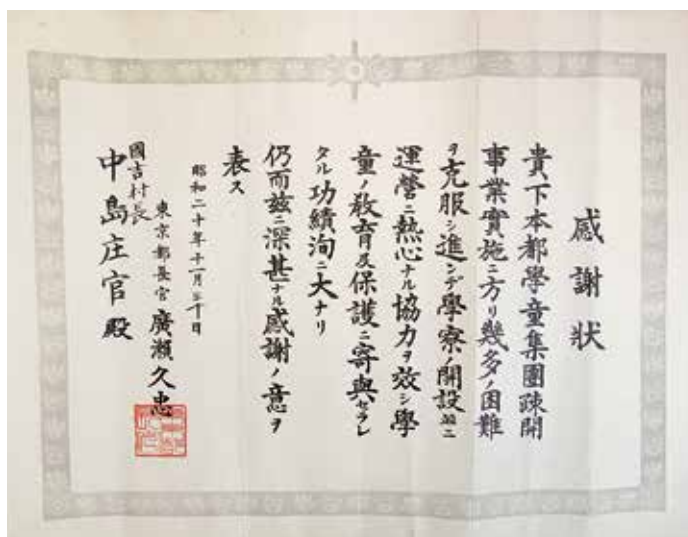 感謝狀
貴下本都學童集團疎開
事業實施ニ方リ幾多ノ困難
ヲ克服シ進ンデ學寮ノ開設並ニ
運營ニ熱心ナル協力ヲ效シ學
童ノ敎育及保護ニ寄與セラレ
タル功績洵ニ大ナリ
仍而玆ニ深甚ナル感謝ノ意ヲ
表ス
昭和二十年十一月三十日
東京都長官 廣瀨久忠
國吉村長
中島庄官殿